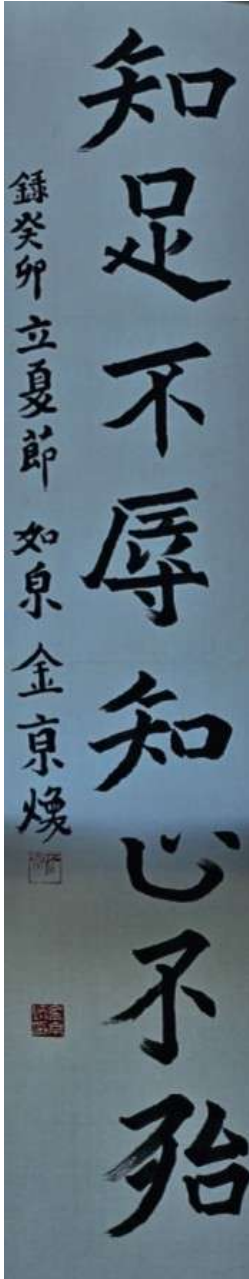 知足不辱知止不殆
錄癸卯立夏節 如泉 金京煥